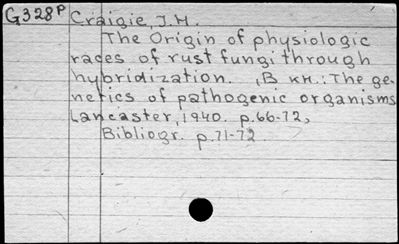 G328P Craigie, J.H.
The Origin of physiologic
races of rust fungi through
hybridization. , В кн.: The ge-
netics of pathogenic organisms
Lancaster, 1940. p.66-72,
Bibliogr. p.71-72